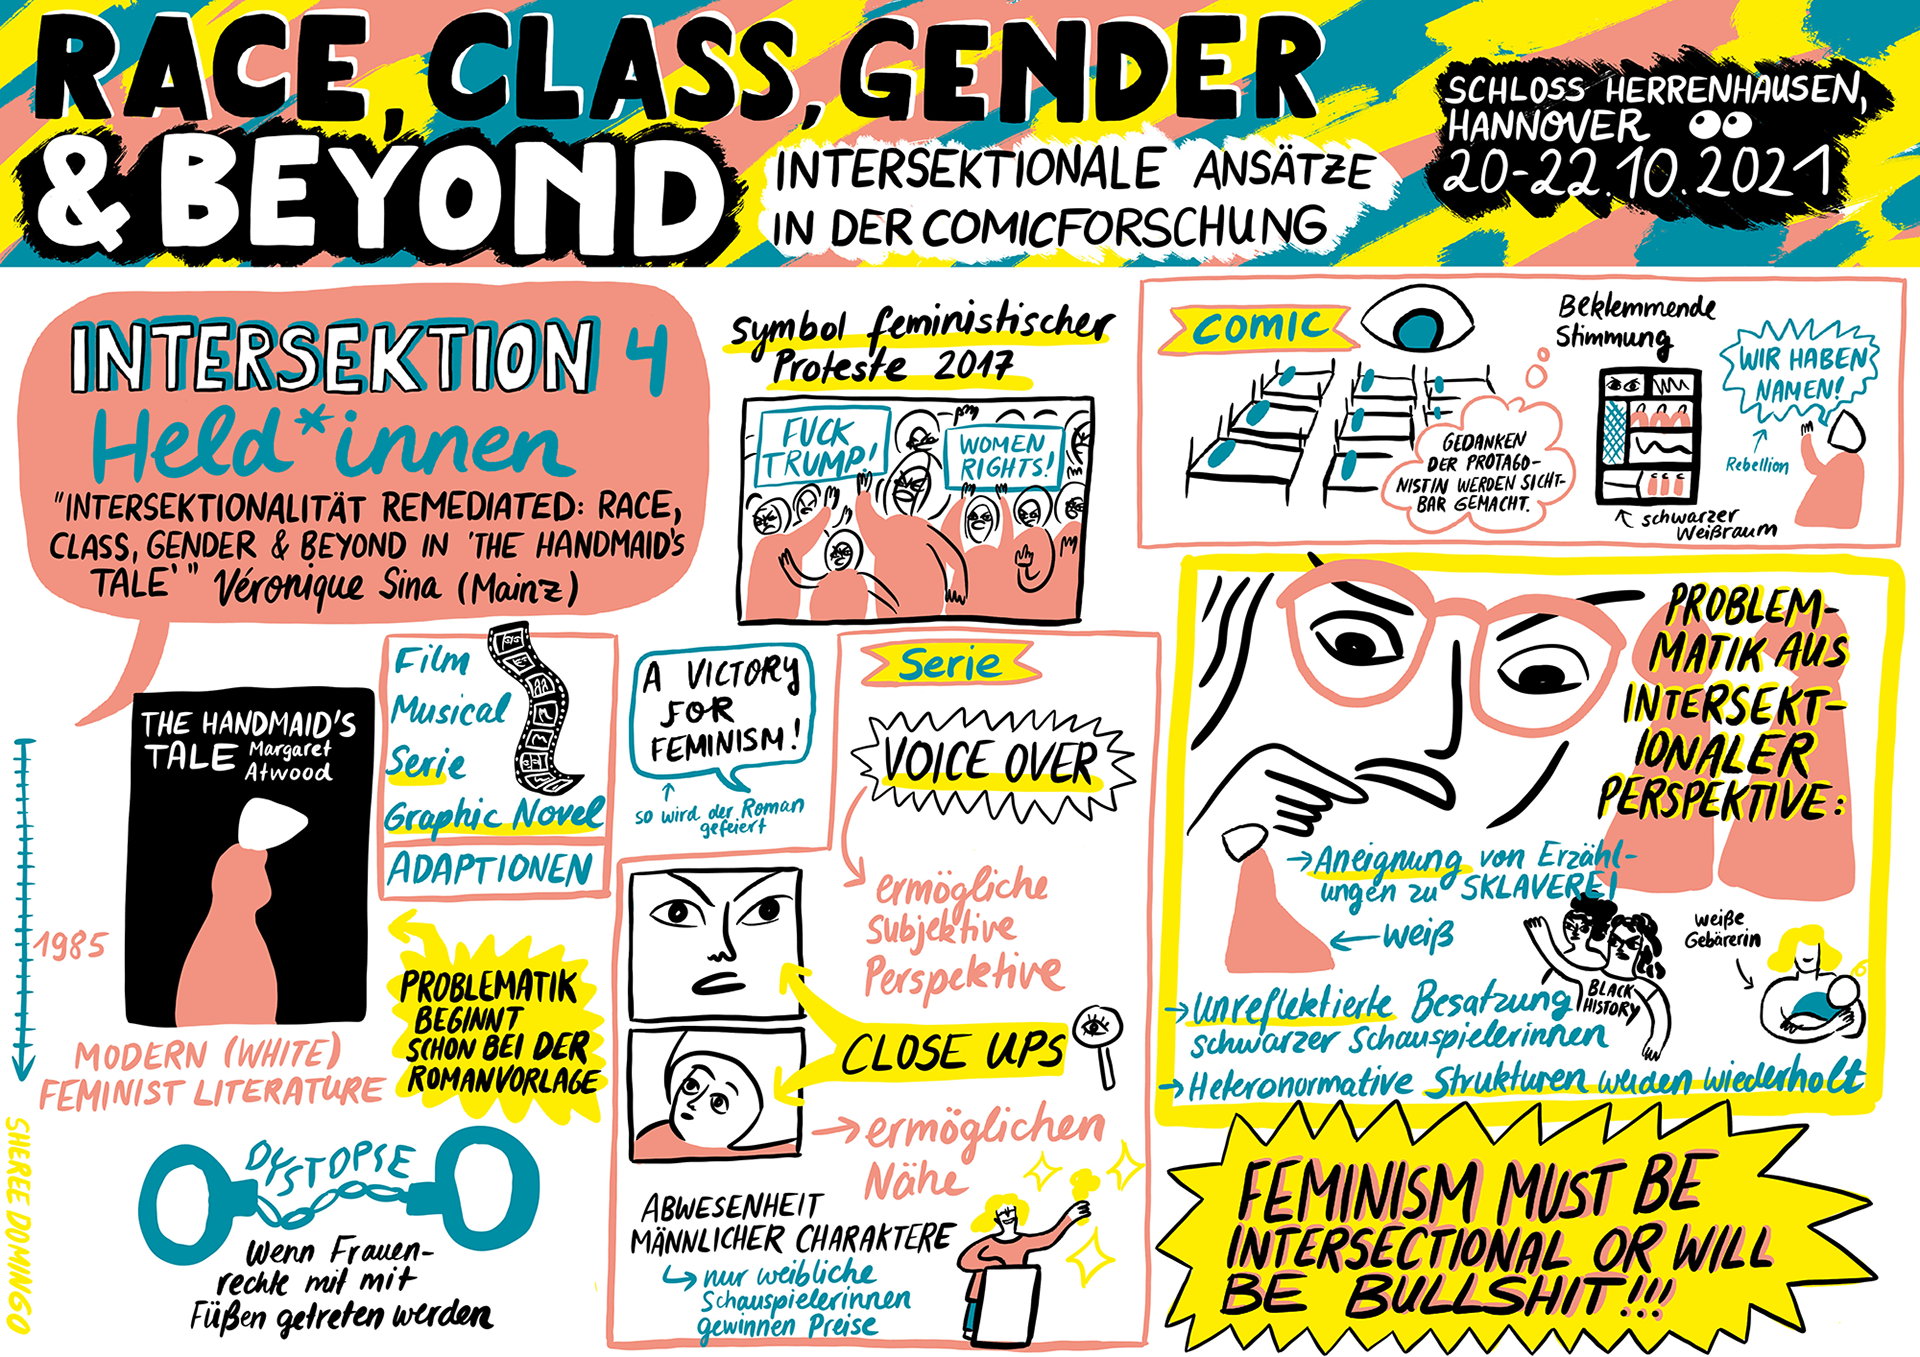 RACE, CLASS, GENDER
& BEYOND
INTERSEKTIONALE ANSÄTZE
IN DER COMICFORSCHUNG
SCHLOSS HERRENHAUSEN,
HANNOVER
20-22.10.2021
INTERSEKTION 4
Held*innen
"INTERSEKTIONALITÄT REMEDIATED: RACE,
CLASS, GENDER & BEYOND IN 'THE HANDMAID'S
TALE'" Véronique Sina (Mainz)
THE HANDMAID'S
TALE Margaret
Atwood
1985
MODERN (WHITE)
FEMINIST LITERATURE
Film
Musical
Serie
Graphic Novel
ADAPTIONEN
PROBLEMATIK
BEGINNT
SCHON BEI DER
ROMANVORLAGE
DYSTOPIE
Wenn Frauen-
rechte mit mit
Füßen getreten werden
SHEREE DOMINGO
Symbol feministischer
Proteste 2017
FUCK
TRUMP!
WOMEN
RIGHTS!
A VICTORY
FOR
FEMINISM!
so wird der Roman
gefeiert
Serie
VOICE OVER
ermögliche
Subjektive
Perspektive
CLOSE UPS
ermöglichen
Nähe
ABWESENHEIT
MÄNNLICHER CHARAKTERE
nur weibliche
Schauspielerinnen
gewinnen Preise
COMIC
GEDANKEN
DER PROTAGO-
NISTIN WERDEN SICHT-
BAR GEMACHT.
Beklemmende
Stimmung
schwarzer
Weißraum
WIR HABEN
NAMEN!
Rebellion
PROBLEM-
MATIK AUS
INTERSEKT-
IONALER
PERSPEKTIVE:
→ Aneignung von Erzähl-
ungen zu SKLAVEREI
← weiß
BLACK
HISTORY
weiße
Gebärerin
→ Unreflektierte Besatzung
schwarzer Schauspielerinnen
→ Heteronormative Strukturen werden wiederholt
FEMINISM MUST BE
INTERSECTIONAL OR WILL
BE BULLSHIT!!!